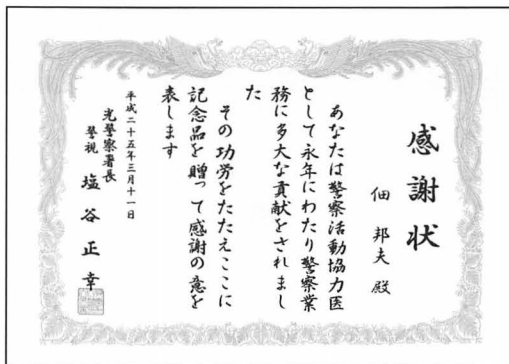 感謝状
佃 邦夫 殿
あなたは警察活動協力医
として永年にわたり警察業
務に多大な貢献をされまし
た
その功労をたたえここに
記念品を贈って感謝の意を
表します
平成二十五年三月十一日
光警察署長
警視 塩谷正幸